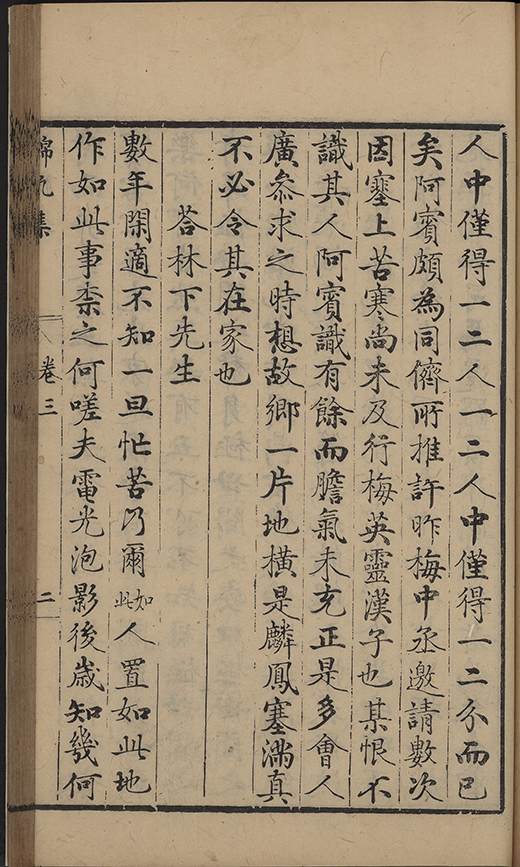 人中僅得一二人一二人中僅得一二分而已
矣阿賓頗為同儕所推許昨梅中丞邀請數次
因塞上苦寒尚未及行梅英靈漢子也某恨不
識其人阿賓識有餘而膽氣未充正是多會人
廣叅求之時想故鄉一片地橫是麟鳳塞滿真
不必令其在家也
荅林下先生
數年閑適不知一旦忙苦乃爾如此人置如此地
作如此事柰之何嗟夫電光泡影後歲知幾何
錦九集
卷三
二